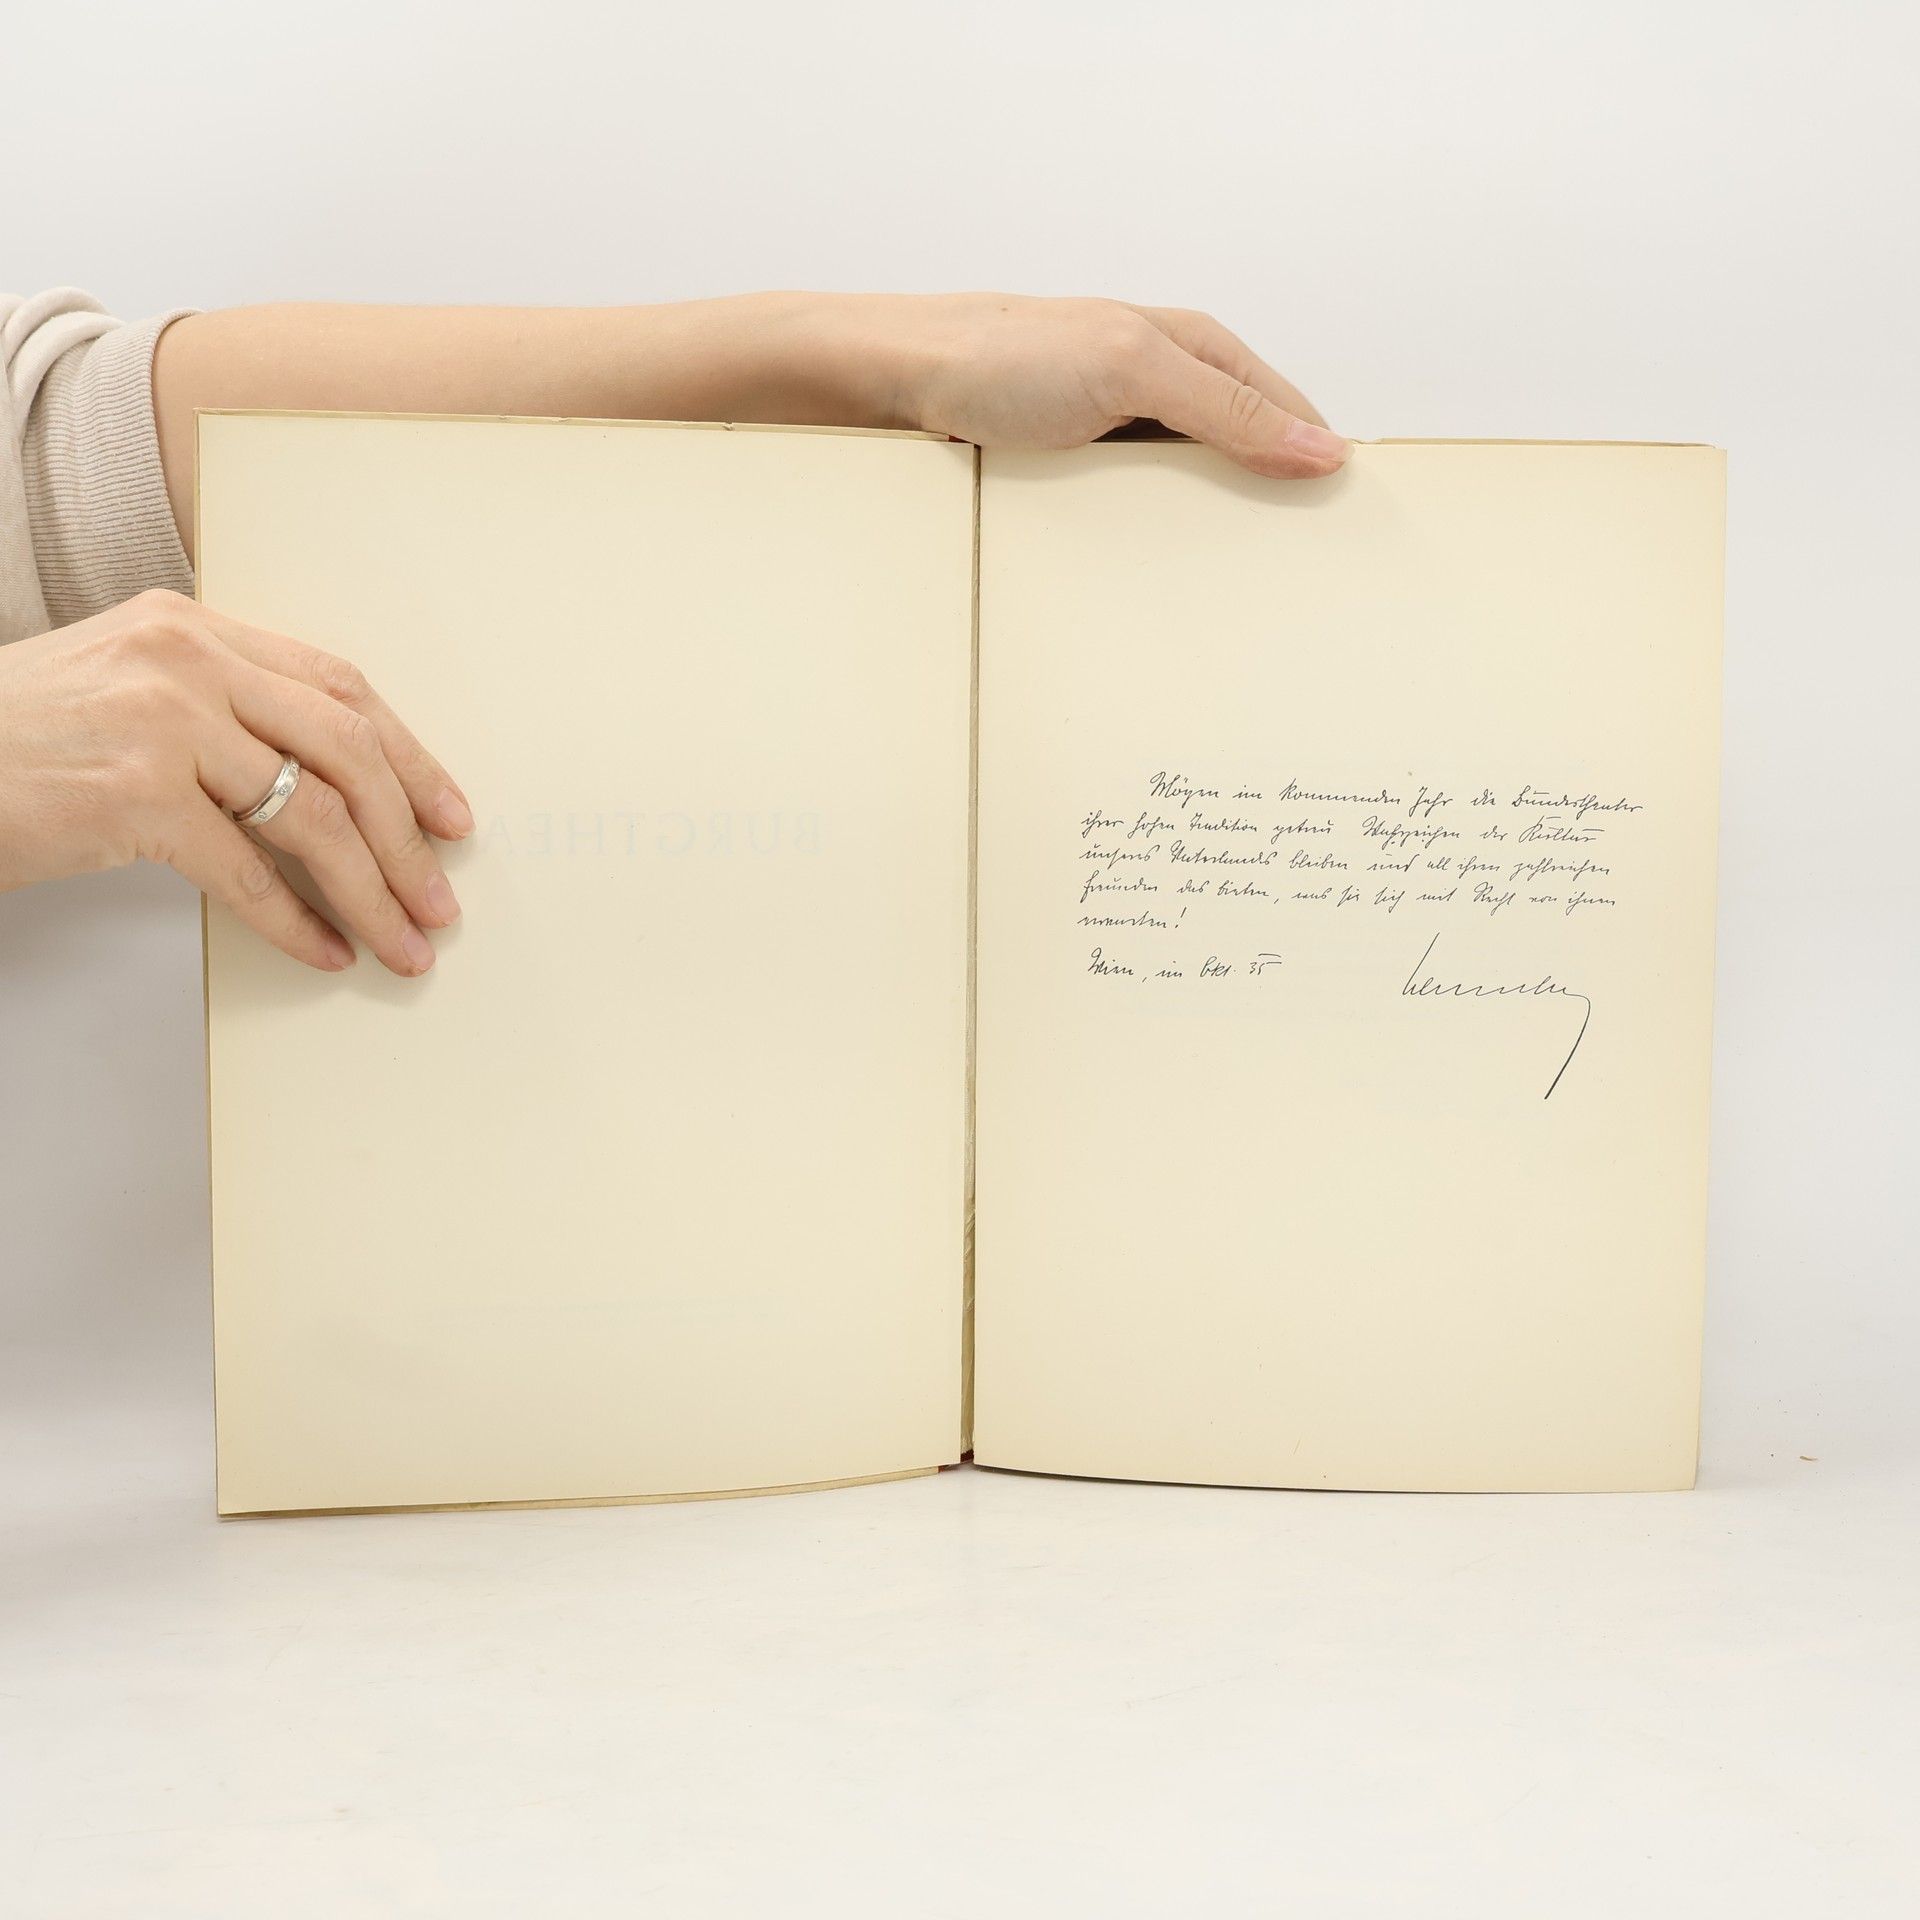 BURGTHEA
Mögen im kommenden Jahr die Bundestheater
ihrer hohen Tradition getreu Wahrzeichen der Kultur
unseres Vaterlands bleiben und all ihren zahlreichen
Freunden das bieten, was sie sich mit Recht von ihnen
erwarten!
Wien, im Okt. 35